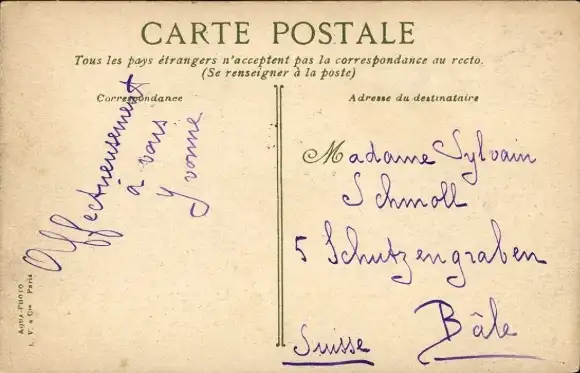 CARTE POSTALE
Tous les pays étrangers n'acceptent pas la correspondance au recto.
(Se renseigner à la poste)
Correspondance
Affectueusement
à vous
Yvonne
Adresse du destinataire
Madame Sylvain
Schmoll
5 Schutzengraben
Bâle
Suisse
AQUA-PHOTO
L. V. & Cie Paris